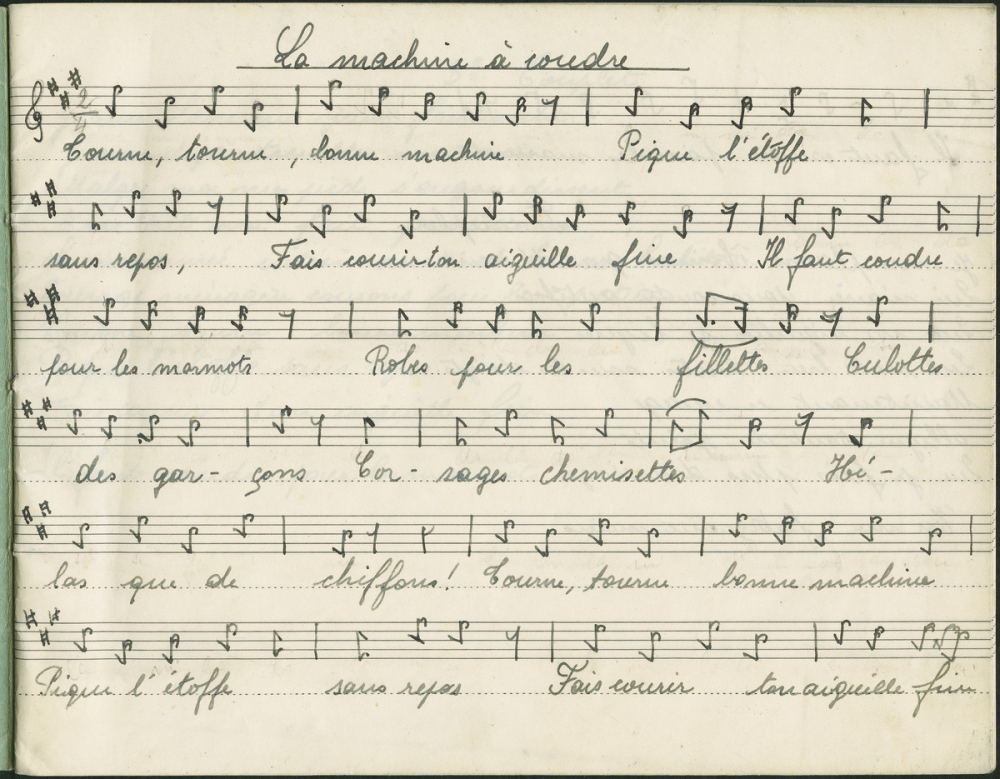 La machine à coudre
2/4
Tourne, tourne, bonne machine Pique l'étoffe
sans repos, Fais courir ton aiguille fine Il faut coudre
pour les marmots Robes pour les fillettes Culottes
des gar- çons Cor- sages chemisettes Hé-
las que de chiffons! Tourne, tourne bonne machine
Pique l'étoffe sans repos Fais courir ton aiguille fine